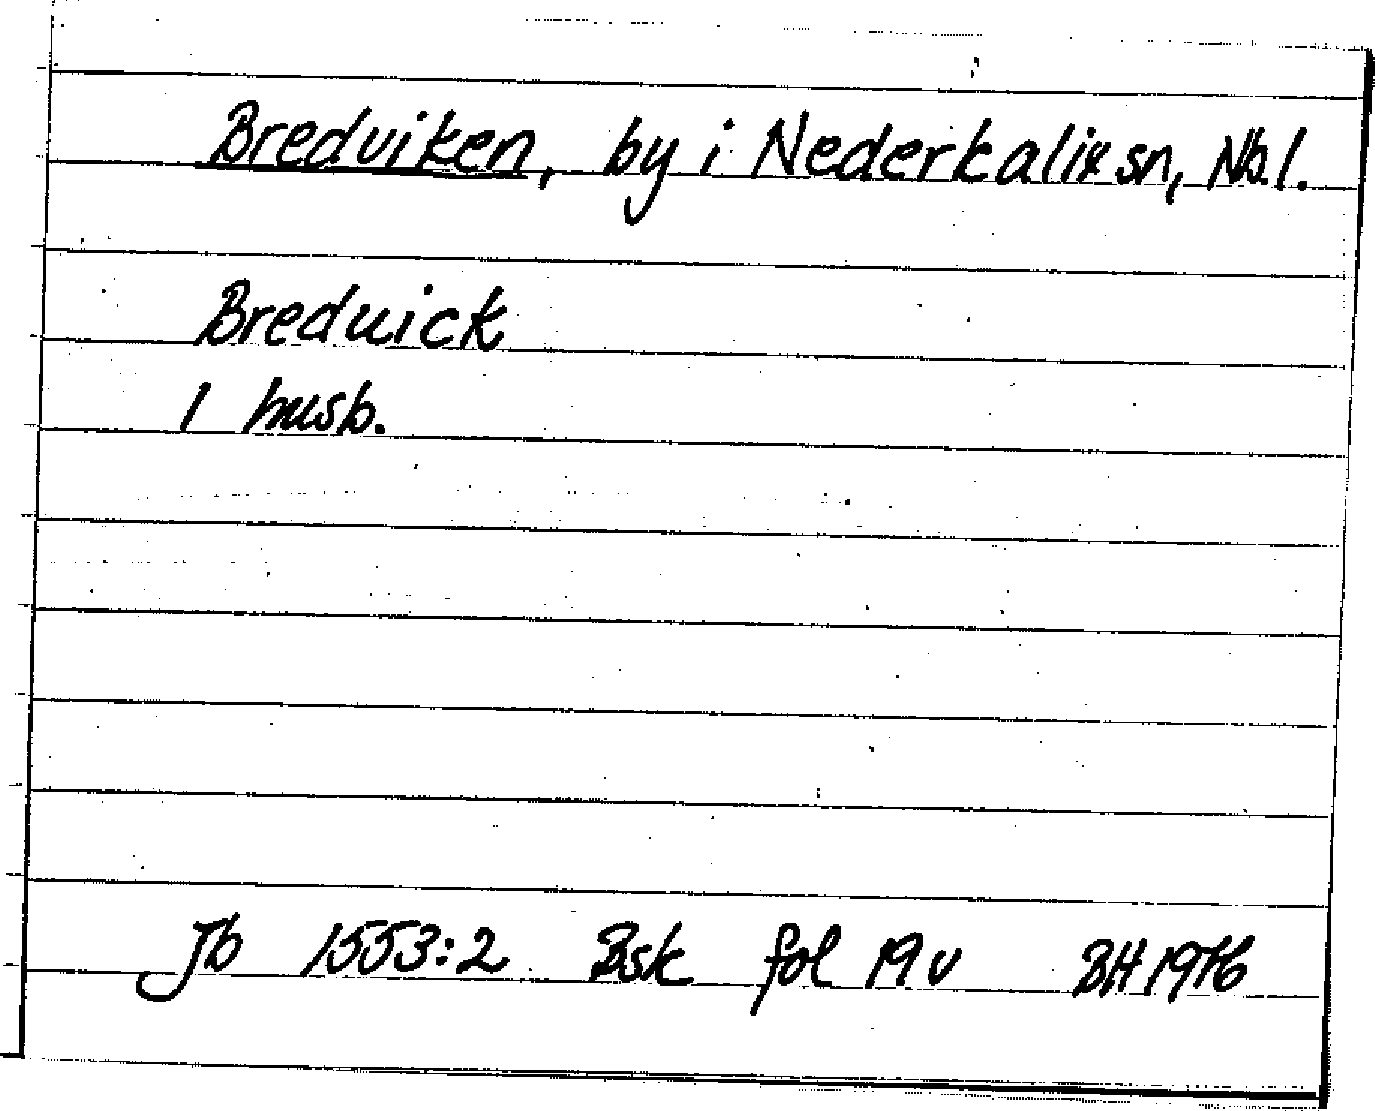 Bredviken, by i Nederkalix sn, Nb. l.
Breduick
1 husb.
Jb 1553:2 Bsk fol 19 v BH 1976